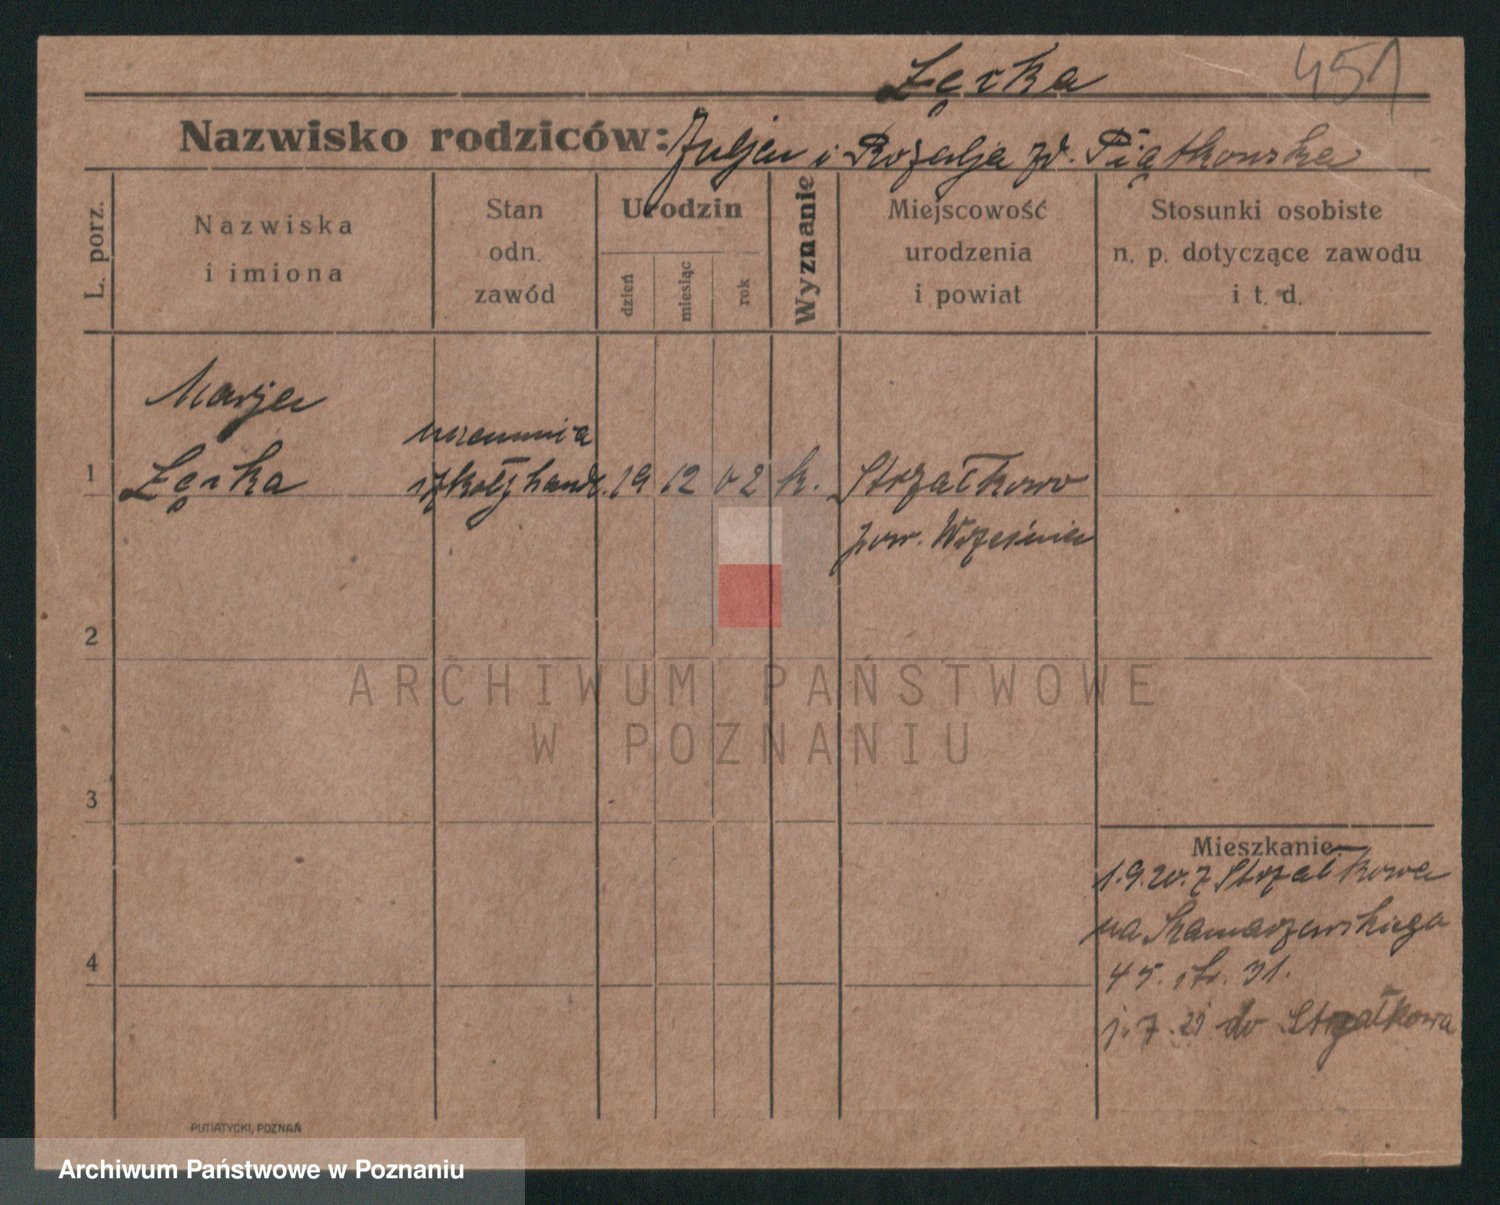 Łęcka 451
Nazwisko rodziców: Juljan i Rozalja zd. Piątkowska
L. porz.
Nazwiska
i imiona
Stan
odn.
zawód
Urodzin
dzień
miesiąc
rok
Wyznanie
Miejscowość
urodzenia
i powiat
Stosunki osobiste
n. p. dotyczące zawodu
i t. d.
Marja
uczennica
1 Łęcka szkoły handl. 19 12 02 k. Strzałkowo
pow. Września
2
ARCHIWUM PAŃSTWOWE
W POZNANIU
3
Mieszkanie:
1.9.20. z Strzałkowa
na Skamarzewskiego
45. 31.
7. 21 do Strzałkowa
4
PUTIATYCKI, POZNAŃ
Archiwum Państwowe w Poznaniu